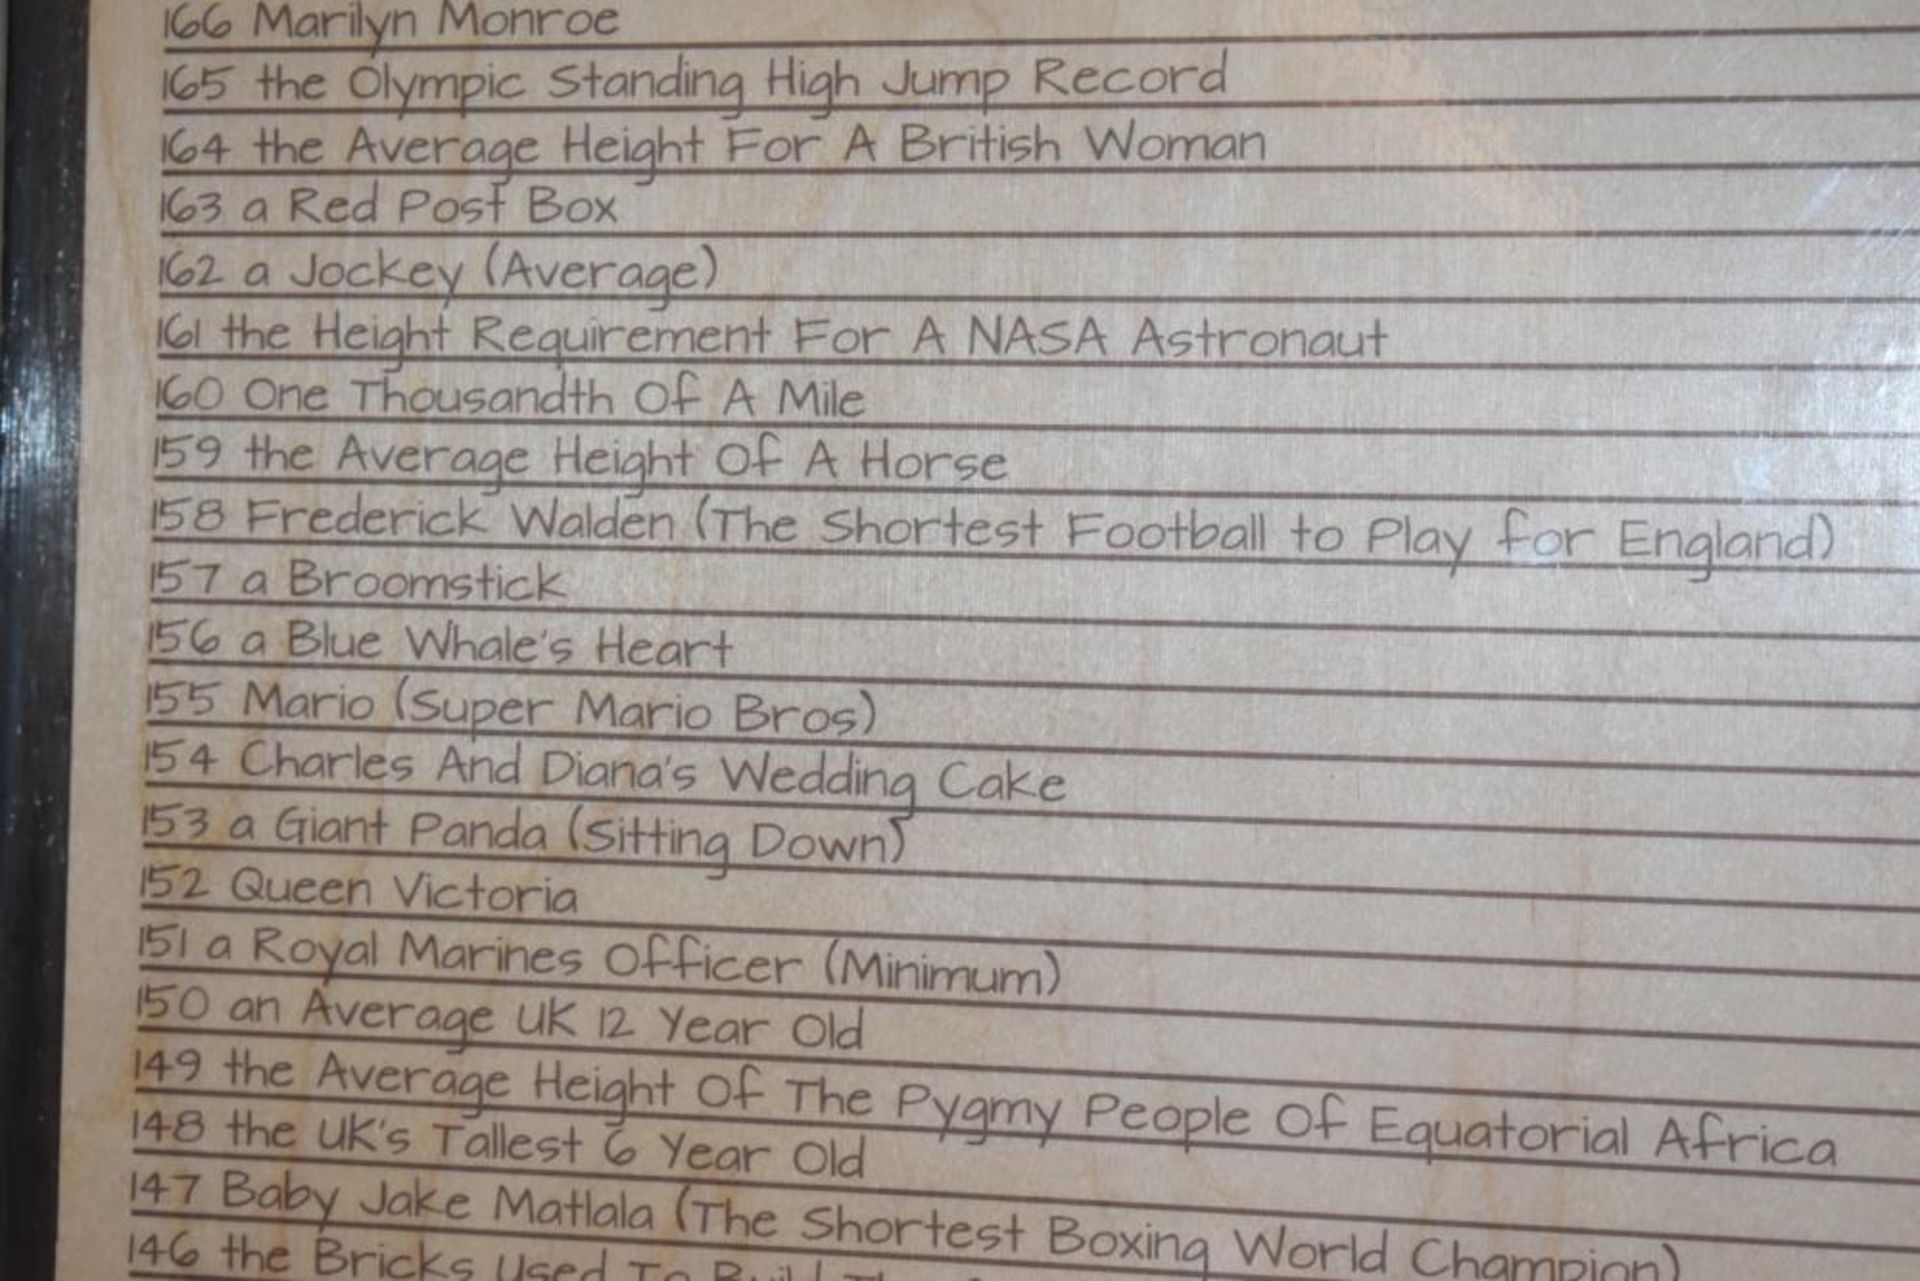 166 Marilyn Monroe
165 the Olympic Standing High Jump Record
164 the Average Height For A British Woman
163 a Red Post Box
162 a Jockey (Average)
161 the Height Requirement For A NASA Astronaut
160 One Thousandth Of A Mile
159 the Average Height Of A Horse
158 Frederick Walden (The Shortest Football to Play for England)
157 a Broomstick
156 a Blue Whale's Heart
155 Mario (Super Mario Bros)
154 Charles And Diana's Wedding Cake
153 a Giant Panda (Sitting Down)
152 Queen Victoria
151 a Royal Marines Officer (Minimum)
150 an Average UK 12 Year Old
149 the Average Height Of The Pygmy People Of Equatorial Africa
148 the UK's Tallest 6 Year Old
147 Baby Jake Matlala (The Shortest Boxing World Champion)
146 the Bricks Used To Build